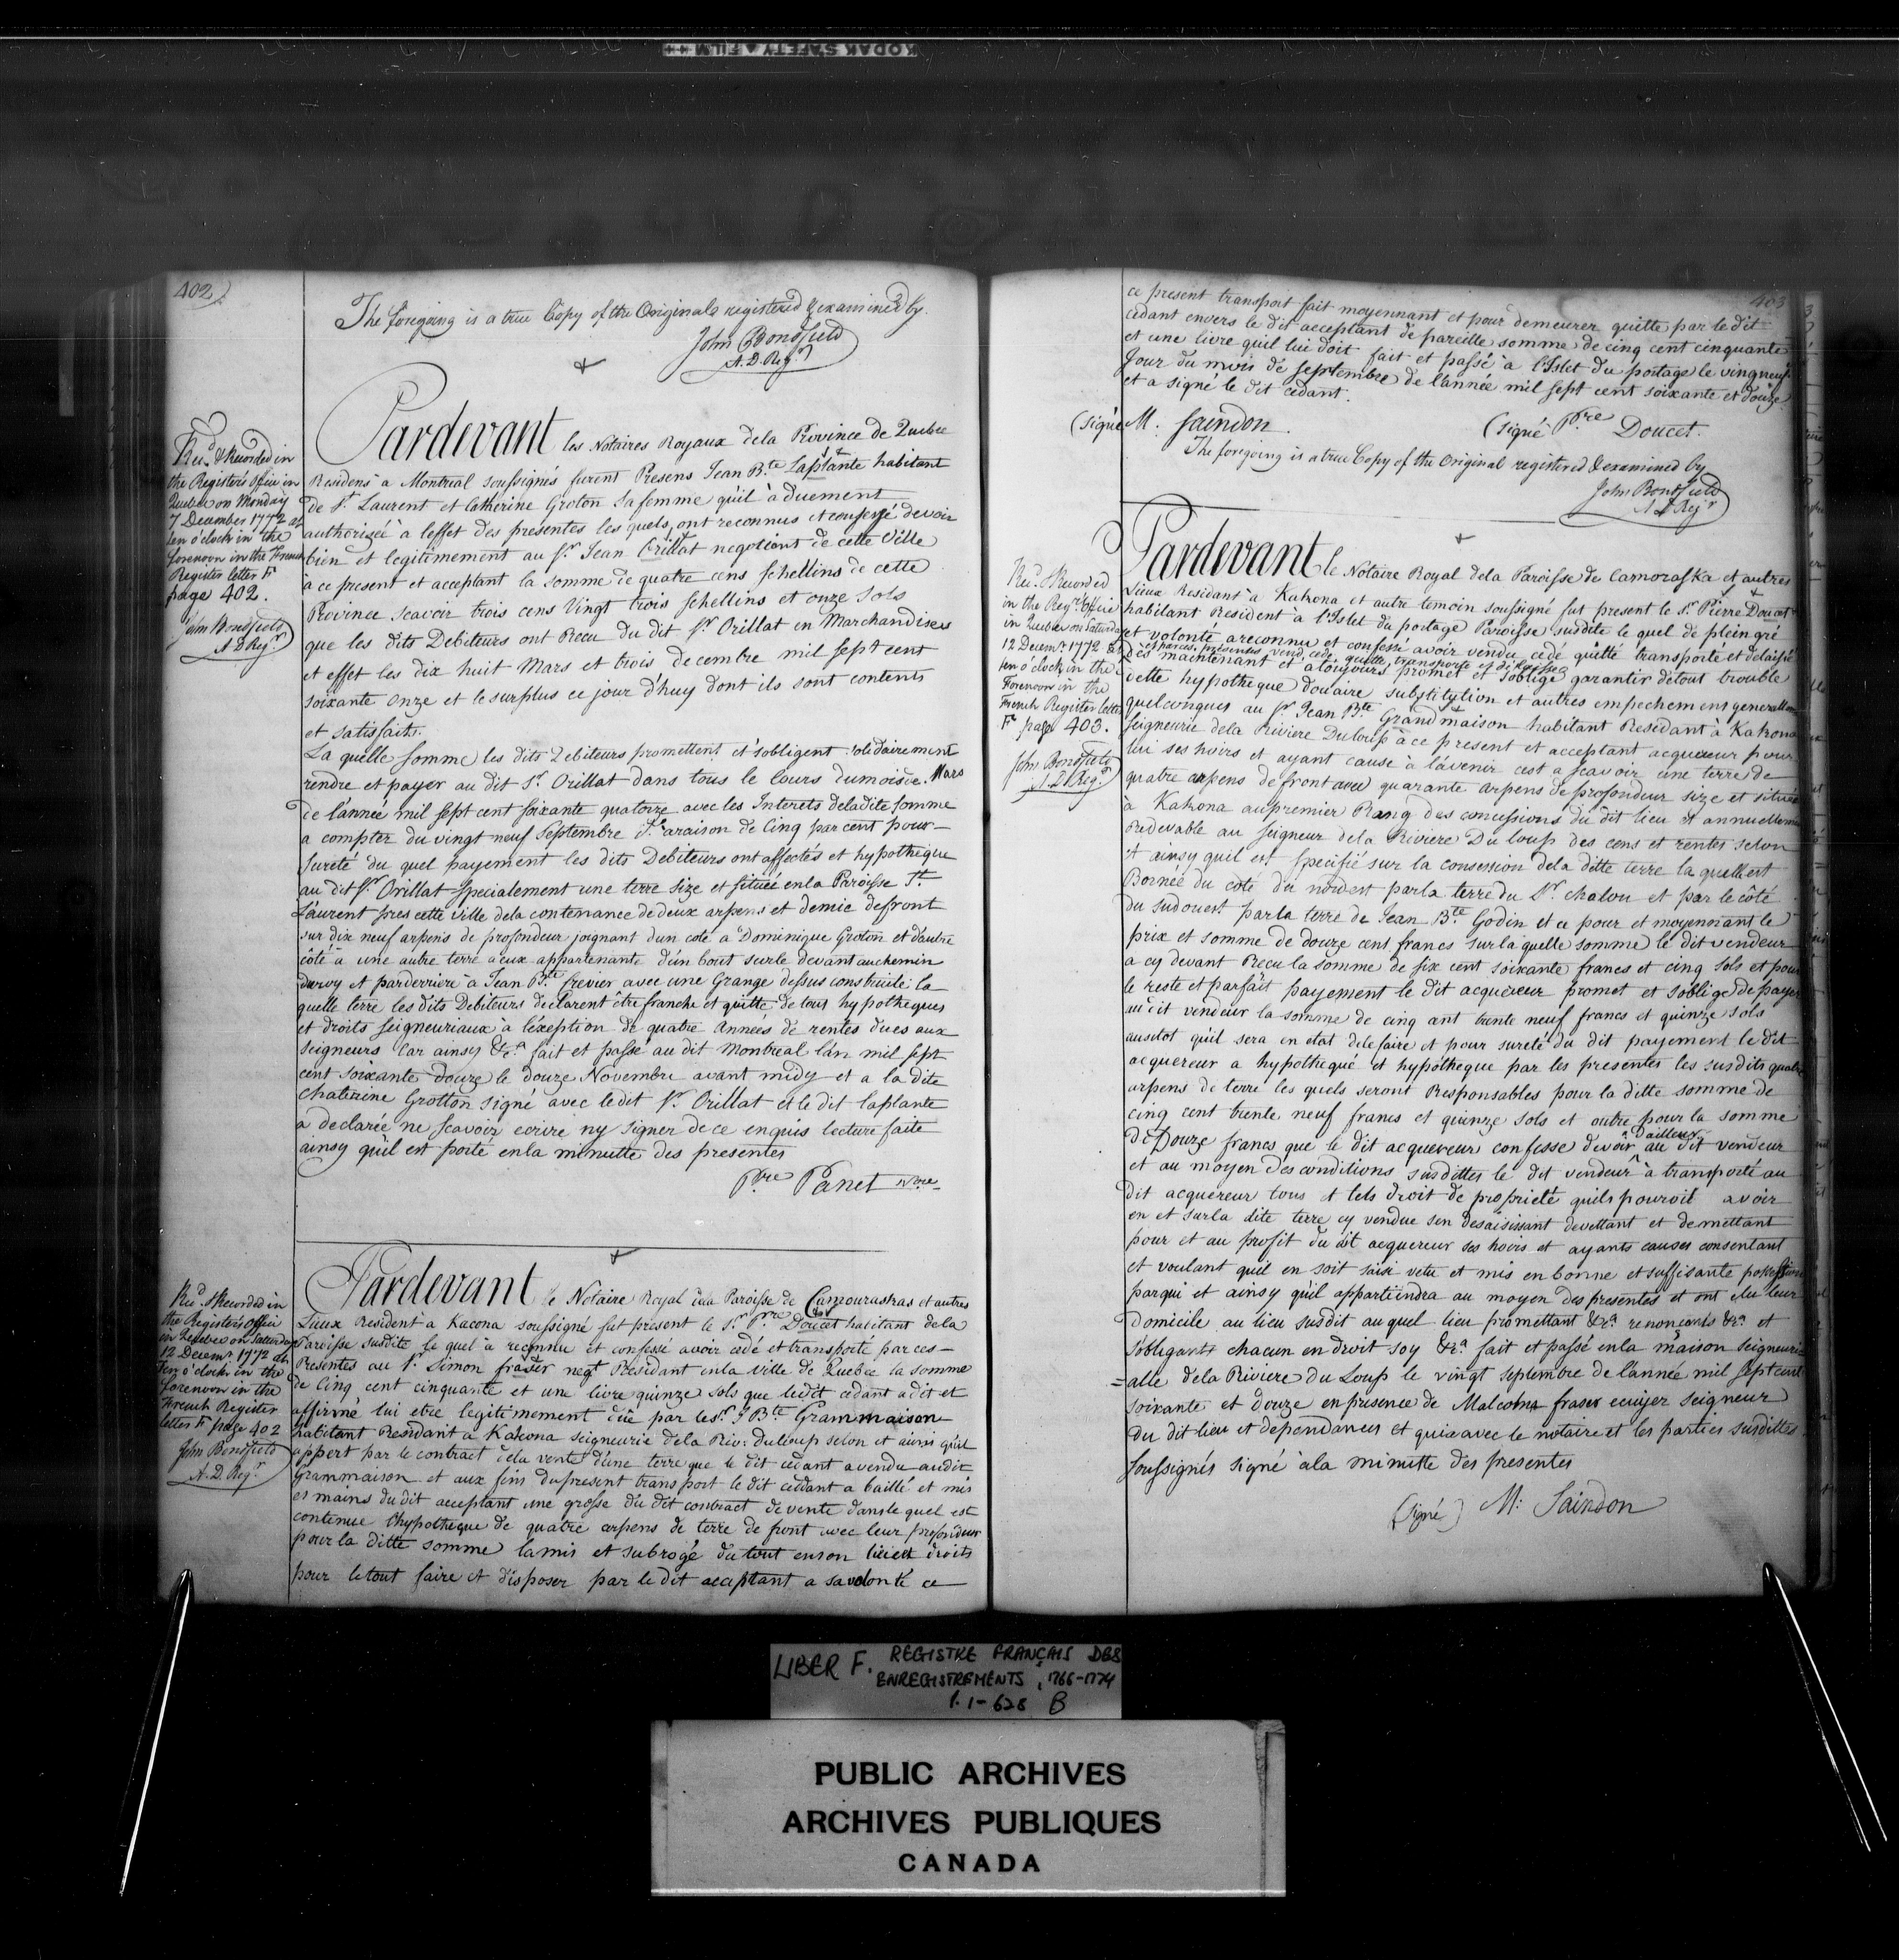 KODAK SAFETY FILM
402
The foregoing is a true Copy of the Originals registered & examined by
John Bondfield
A. D. Regr
Recd & Recorded in
the Register's Office in
Quebec on Monday
7 December 1772 at
ten o'clock in the
forenoon in the French
Register letter F
page 402.
John Bondfield
A D Regr
Pardevant les Notaires Royaux dela Province de Quebec
Residens à Montreal soussignés furent Presens Jean Bte Laplante habitant
de St Laurent et Catherine Groton sa femme qu'il à duement
authorisée à l'effet des presentes les quels ont reconnus et confessé devoir
bien et legitimement au Sr Jean Orillat negotiant de cette Ville
à ce present et acceptant la somme de quatre cens schellins de cette
Province scavoir trois cens Vingt trois schellins et onze sols
que les dits Debiteurs ont Recu du dit Sr Orillat en Marchandises
et effet les dix huit Mars et trois decembre mil sept cent
soixante onze et le surplus ce jour d'huy dont ils sont contents
et satisfaits.
La quelle somme les dits Debiteurs promettent et s'obligent solidairement
rendre et payer au dit Sr Orillat dans tous le Cours du mois de Mars
de l'année mil sept cent soixante quatorze avec les Interets dela dite somme
a compter du vingt neuf Septembre araison de Cinq par cent pour
sureté du quel payement les dits Debiteurs ont affectés et hypotheque
au dit Sr Orillat specialement une terre size et située en la Paroisse St
Laurent pres cette ville dela contenance de deux arpens et demie de front
sur dix neuf arpens de profondeur joignant d'un coté a Dominique Groton et d'autre
côté à une autre terre à eux appartenante d'un bout sur le devant au chemin
du roy et par derriere à Jean Bte Crevier avec une Grange dessus construite la
quelle terre les dits Debiteurs declarent être franche et quitte de tous hypotheques
et droits seigneuriaux a l'exeption de quatre Années de rentes dues aux
seigneurs Car ainsy &ca fait et passé au dit Montreal l'an mil sept
cent soixante douze le douze Novembre avant midy et a la dite
Chaterine Grotton signé avec le dit Sr Orillat et le dit laplante
a declarée ne scavoir ecrire ny signer de ce enquis lecture faite
ainsy qu'il est porté en la minutte des presentes
Prre Panet Nre
Recd & Recorded in
the Registers Office
in Quebec on Saturday
12 Decemr 1772 at
Ten o'clock in the
forenoon in the
French Register
letter F page 402
John Bondfield
A. D. Regr
Pardevant le Notaire Royal dela Paroisse de Camouraskas et autres
Lieux Resident à Kacona soussigné fut present le Sr Prre Doucet habitant dela
Paroisse susdite le quel à reconnu et confessé avoir cedé et transporté par ces
Presentes au Sr Simon fraser negt Residant en la ville de Quebec la somme
de Cinq cent cinquante et une livre quinze sols que ledit cedant a dit et
affirmé lui etre legitimement düe par le Sr J Bte Grammaison
habitant Residant à Kakona seigneurie dela Riv: du Loup selon et ainsi qu'il
appert par le contract dela vente d'une terre que le dit cedant a vendu audit
Grammaison et aux fins du present transport le dit ceddant a baillé et mis
es mains du dit acceptant une grosse du dit contract de vente dans le quel est
contenue l'hypotheque de quatre arpens de terre de front avec leur profondeur
pour la ditte somme la mis et subrogé du tout en son lieu et droits
pour le tout faire et disposer par le dit acceptant a sa volonté ce
403
ce present transport fait moyennant et pour demeurer quitte par le dit
cedant envers le dit acceptant de pareille somme de cinq cent cinquante
et une livre quil lui doit fait et passé à l'Islet du portage le vingneuf
Jour du mois de septembre de l'année mil sept cent soixante et douze
et a signé le dit cedant.
(Signé M: Saindon. (Signé Prre Doucet.
The foregoing is a true Copy of the Original registered & examined by
John Bondfield
A D Regr
Recd & Recorded
in the Regrs Office
in Quebec on Saturday
12 Decemr 1772 at
ten o'clock in the
Forenoon in the
French Register letter
F page 403.
John Bondfield
A. D. Regr
Pardevant le Notaire Royal dela Paroisse de Camoraska et autres
Lieux Residant à Kakona et autre temoin soussigné fut present le Sr Pierre Doucet
habitant Resident à l'Islet du portage Paroisse susdite le quel de plein gré
et volonté a reconnu et confessé avoir vendu cedé quitté transporté et delaissé
et par ces presentes vend cede quitte transporte et délaisse
Dès maintenant et à toujours promet et s'oblige garantir de tout trouble
dette hypotheque douaire substitution et autres empechemens generallement
quelconques au Sr Jean Bte Grandmaison habitant Residant à Kakona
seigneurie dela Riviere Du loup à ce present et acceptant acquereur pour
lui ses hoirs et ayant cause à l'avenir cest a scavoir une terre de
quatre arpens de front avec quarante arpens de profondeur size et située
à Kakona au premier Rang des concessions du dit lieu et annuellement
Redevable au seigneur dela Riviere Du loup des cens et rentes selon
et ainsy quil est specifié sur la concession dela ditte terre la quelle est
Bornée du coté du nordest par la terre du Sr chalou et par le côté
du sudouest par la terre de Jean Bte Godin et ce pour et moyennant le
prix et somme de douze cens francs sur la quelle somme le dit vendeur
a cy devant Recu la somme de six cent soixante francs et cinq sols et pour
le reste et parfait payement le dit acquereur promet et s'oblige de payer
au dit vendeur la somme de cinq cent trente neuf francs et quinze sols
ausitot qu'il sera en etat dele faire et pour sureté du dit payement le dit
acquereur a hypothequé et hypotheque par les presentes les susdits quatre
arpens de terre les quels seront Responsables pour la ditte somme de
cinq cent trente neuf francs et quinze sols et outre pour la somme
De Douze francs que le dit acquereur confesse devoir d'ailleurs au dit vendeur
et au moyen des conditions susdittes le dit vendeur à transporté au
dit acquereur tous et tels droit de proprieté quils pouroit avoir
en et sur la dite terre cy vendue s'en desaisissant devettant et demettant
pour et au profit du dit acquereur ses hoirs et ayants causes consentant
et voulant quil en soit saisi vetu et mis en bonne et suffisante possession
par qui et ainsy qu'il appartiendra au moyen des presentes et ont elu leur
Domicile au lieu susdit au quel lieu promettant &ca renoncants &ca et
s'obligants chacun en droit soy &ca fait et passé en la maison seigneuri-
=alle dela Riviere du Loup le vingt septembre de l'année mil sept cent
soixante et douze en presence de Malcolm fraser ecuijer seigneur
du dit lieu et dependances et qui a avec le notaire et les parties susdittes
soussignés signé à la minutte des presentes
(signé) M: Saindon
LIBER F. REGISTRE FRANÇAIS DES
ENREGISTREMENTS, 1766-1774
P. 1-628 B
PUBLIC ARCHIVES
ARCHIVES PUBLIQUES
CANADA